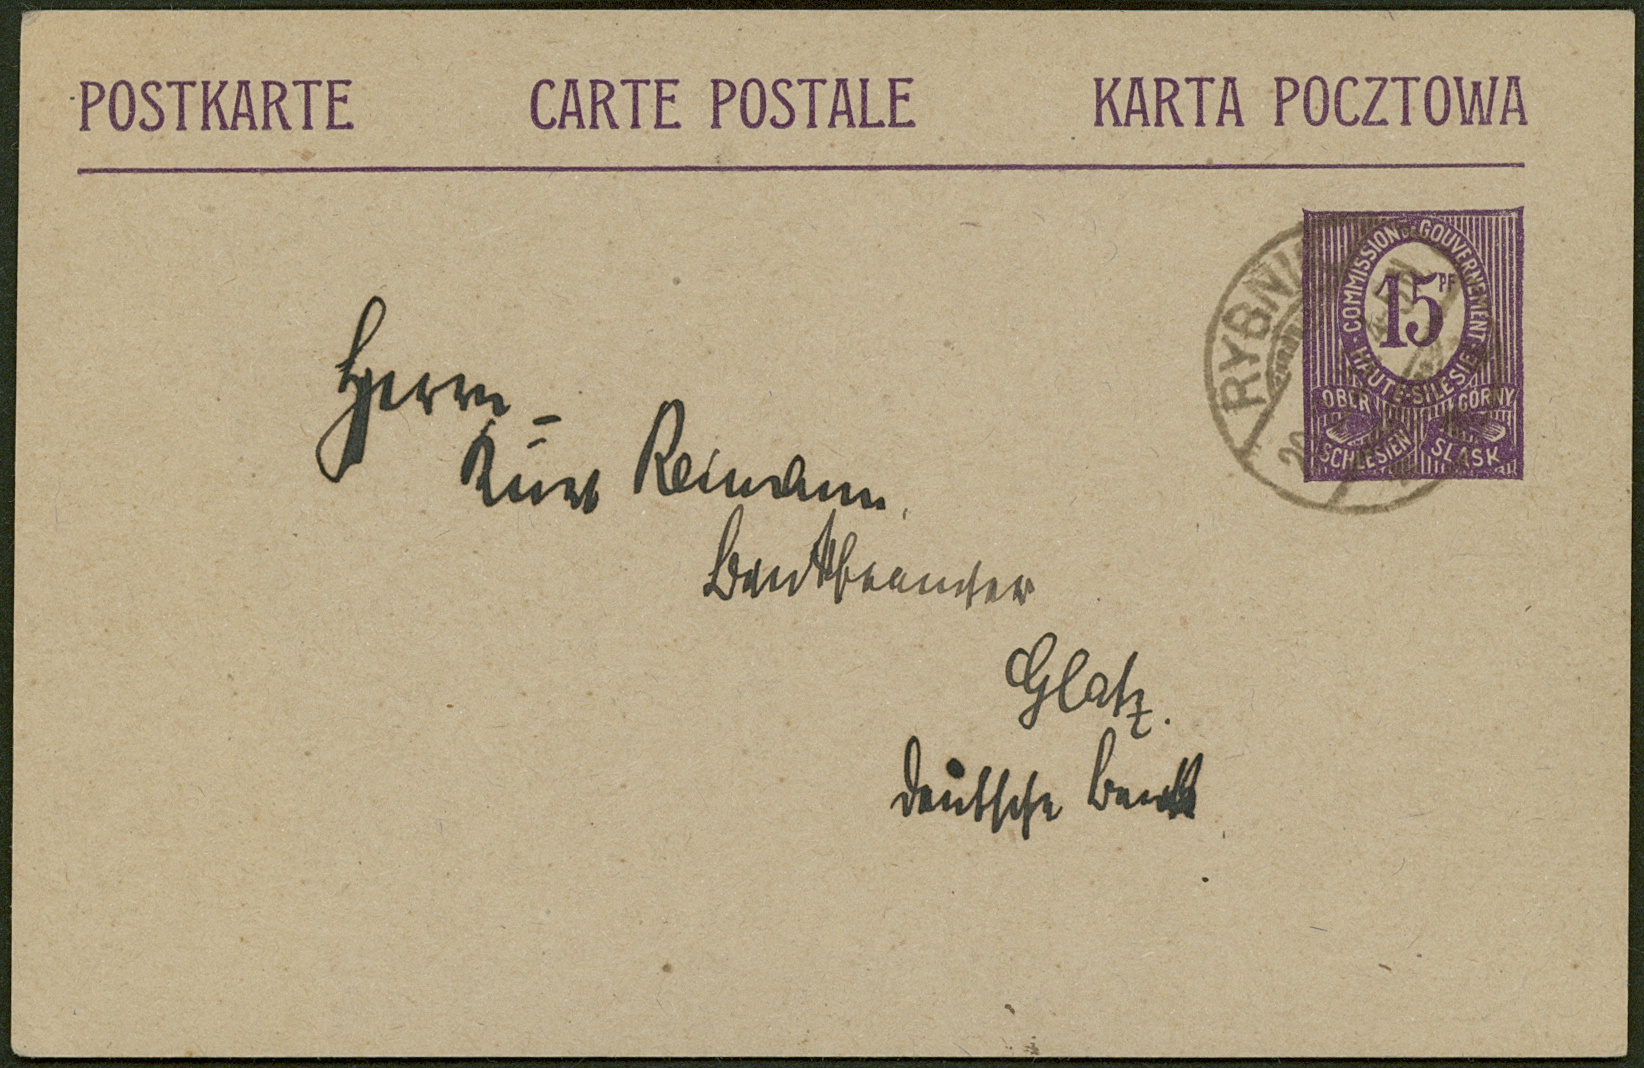 POSTKARTE CARTE POSTALE KARTA POCZTOWA
COMMISSION DE GOUVERNEMENT
HAUTE-SILESIE
15 PF
OBER GÓRNY
SCHLESIEN ŚLĄSK
RYBNI
20
Herrn
Kurt Reimann,
Bankbeamter
Glatz.
Deutsche Bank